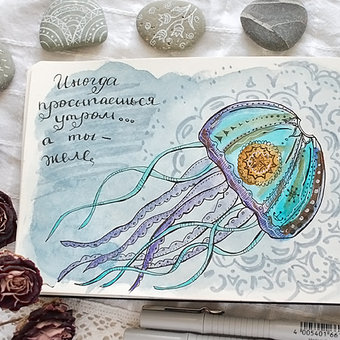 Иногда
просыпаешься
утром...
а ты -
желе,
4 005401 66